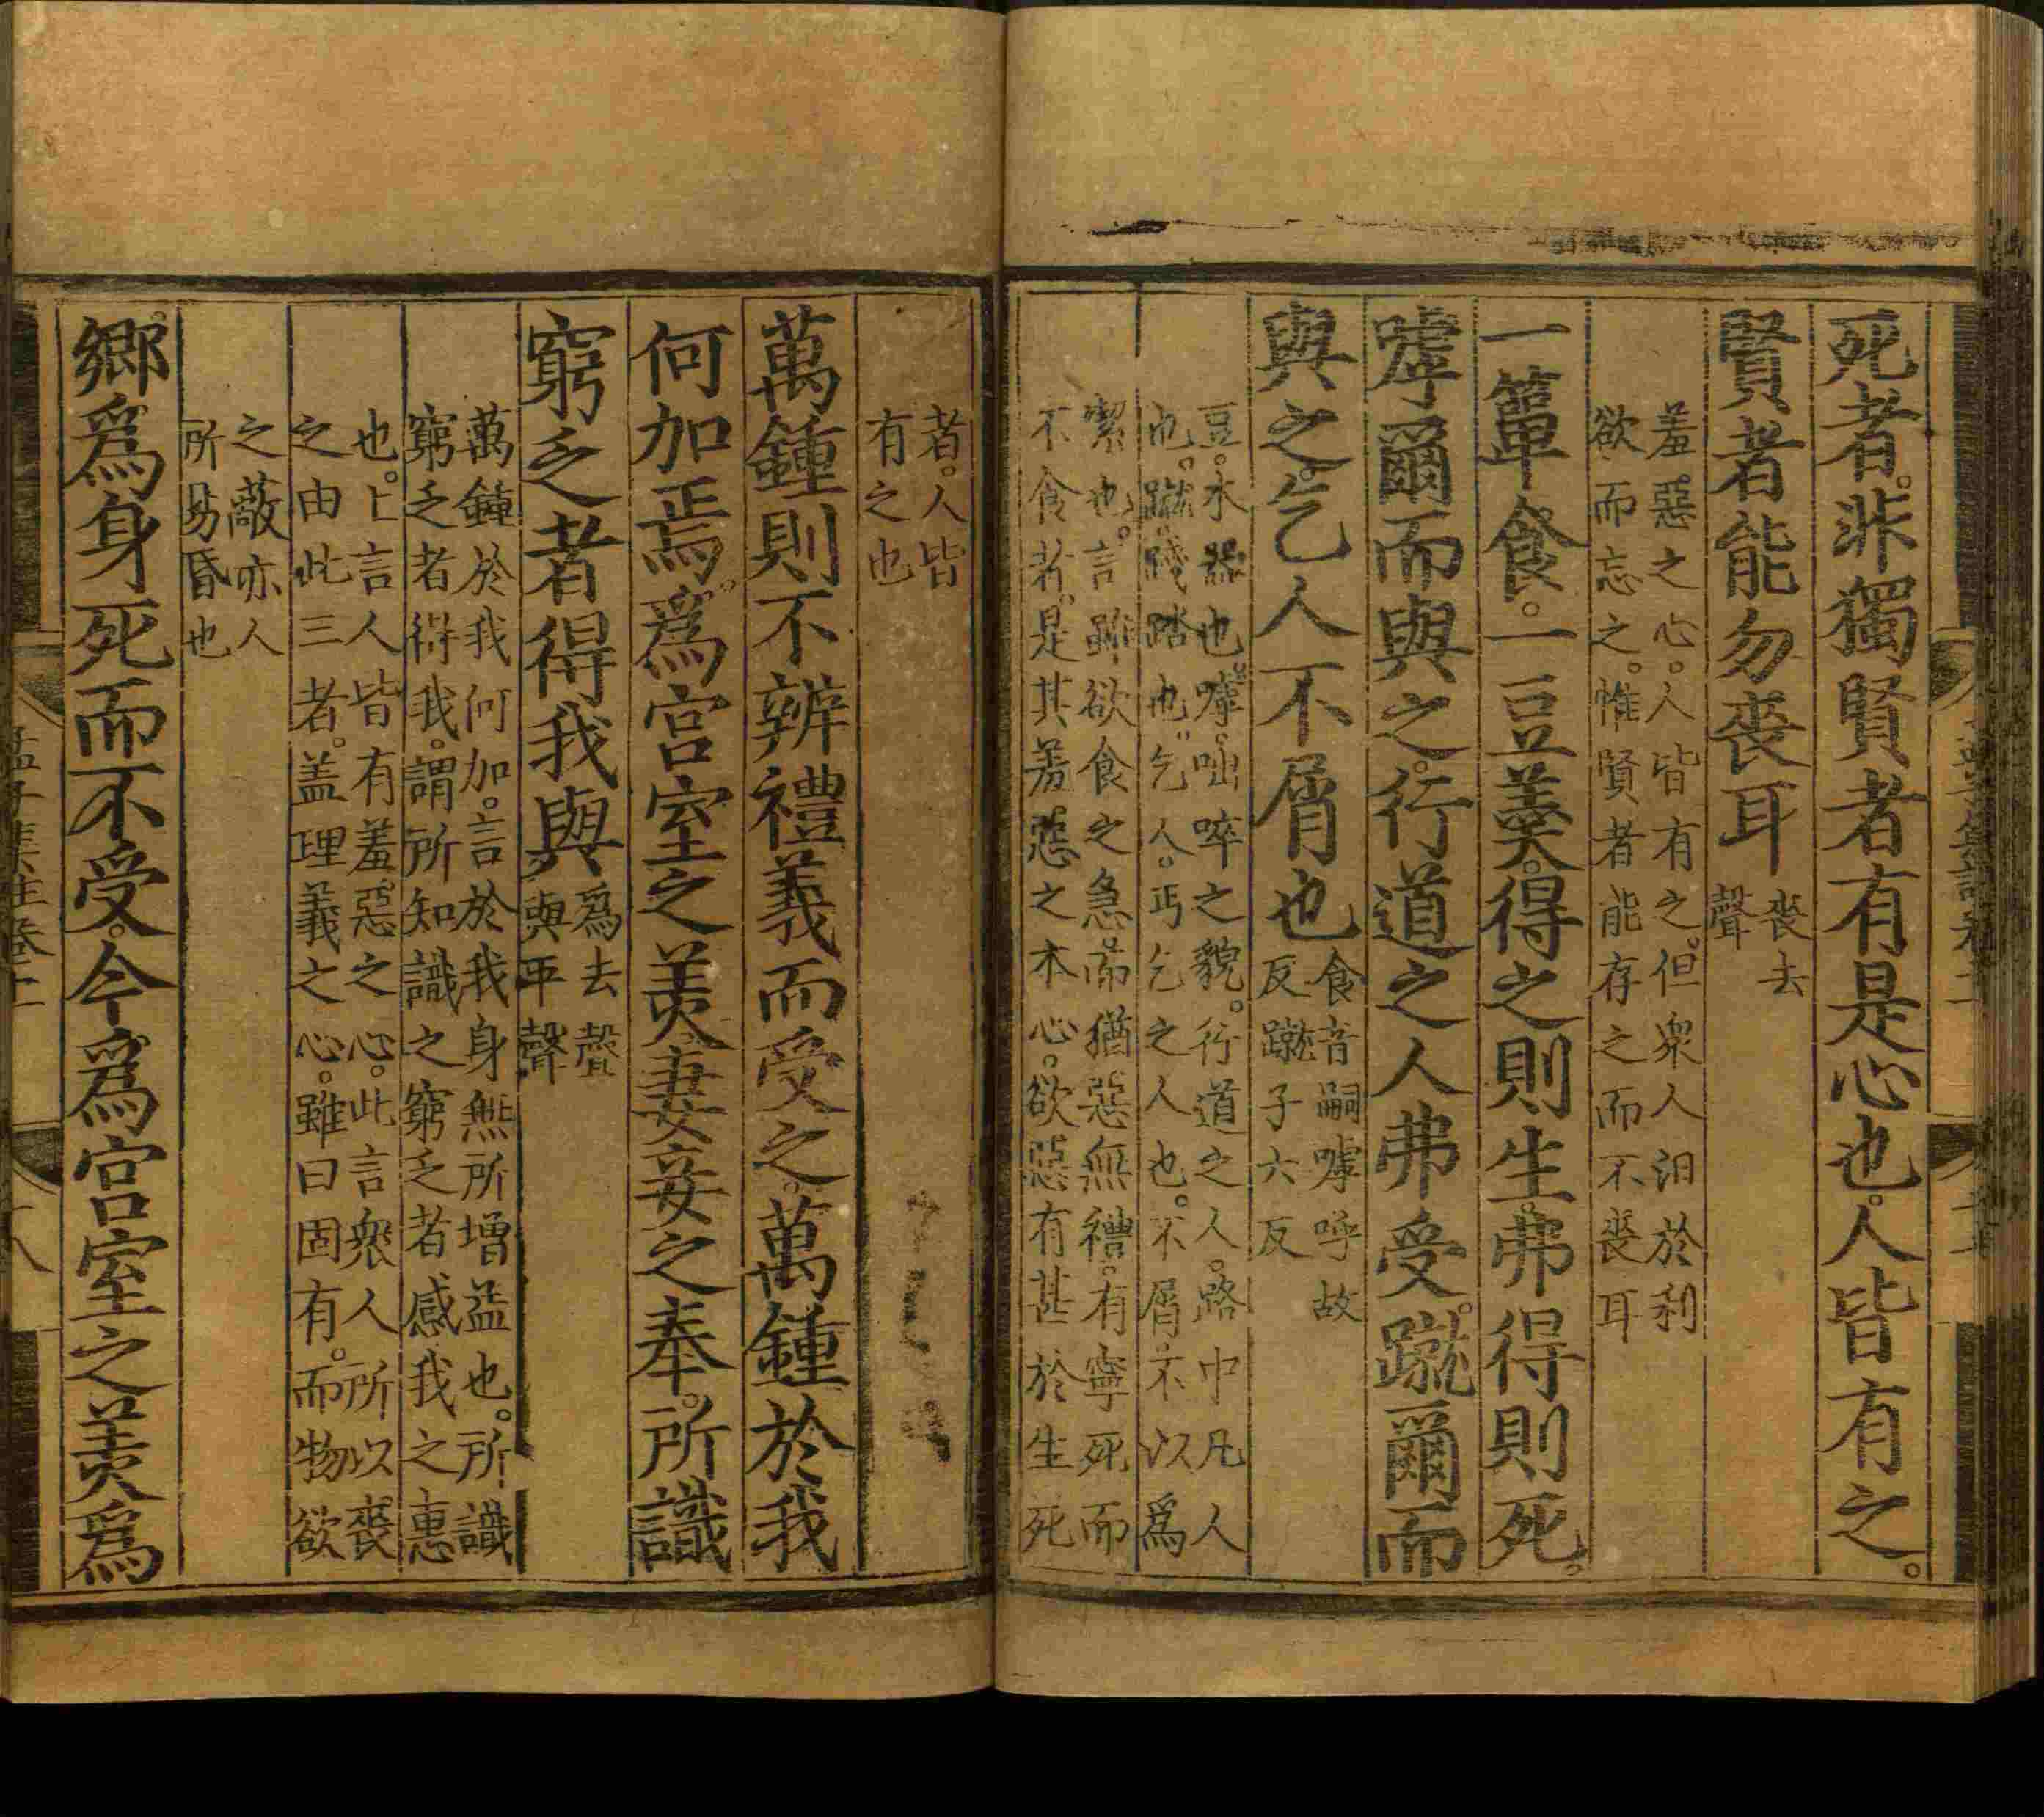 死者。非獨賢者有是心也。人皆有之。
賢者能勿喪耳喪去
聲
羞惡之心。人皆有之。但衆人汨於利
欲而忘之。惟賢者能存之而不喪耳
一簞食。一豆羹。得之則生。弗得則死。
嘑爾而與之。行道之人弗受。蹴爾而
與之。乞人不屑也食音嗣嘑呼故
反蹴子六反
豆。木器也。嘑。咄啐之貌。行道之人。路中凡人
也。蹴。踐踏也。乞人。丐乞之人也。不屑。不以爲
潔也。言雖欲食之急。而猶惡無禮。有寧死而
不食者。是其羞惡之本心。欲惡有甚於生死
者。人皆
有之也
萬鍾則不辨禮義而受之。萬鍾於我
何加焉。爲宮室之美。妻妾之奉。所識
窮乏者得我與爲去聲
與平聲
萬鍾於我何加。言於我身無所增益也。所識
窮乏者得我。謂所知識之窮乏者感我之惠
也。上言人皆有羞惡之心。此言衆人所以喪
之由此三者。盖理義之心。雖曰固有。而物欲
之蔽亦人
所易昏也
鄉爲身死而不受。今爲宮室之美爲
孟子集註卷十一
十八